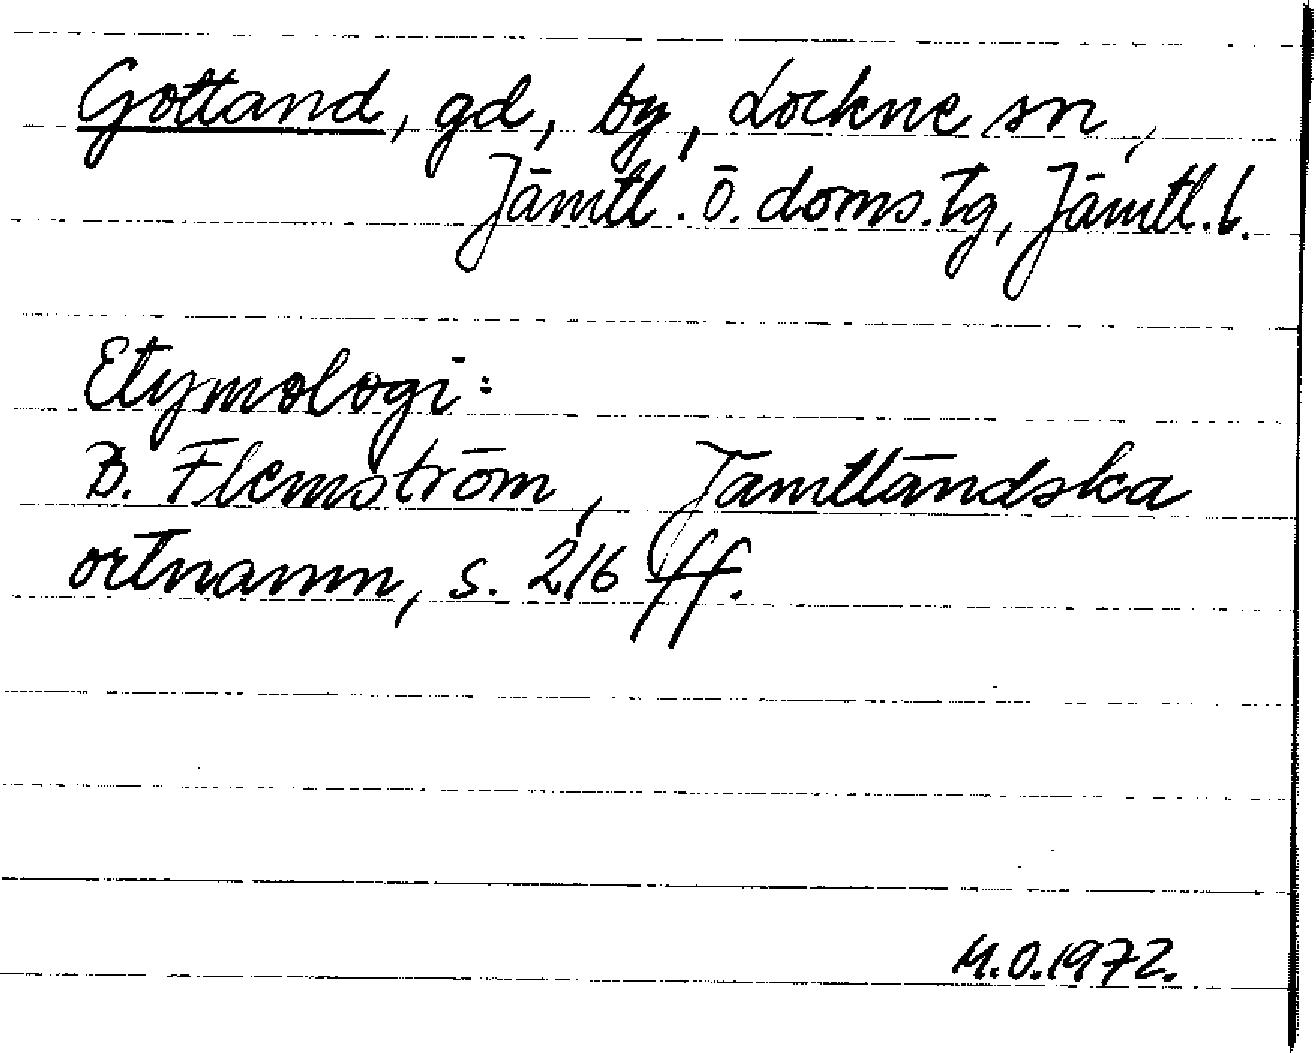 Gottand, gd, by, Lockne sn,
Jämtl. ö. doms. tg, Jämtl. l.
Etymologi:
B. Flemström, Jämtländska
ortnamn, s. 216 ff.
M.O. 1972.